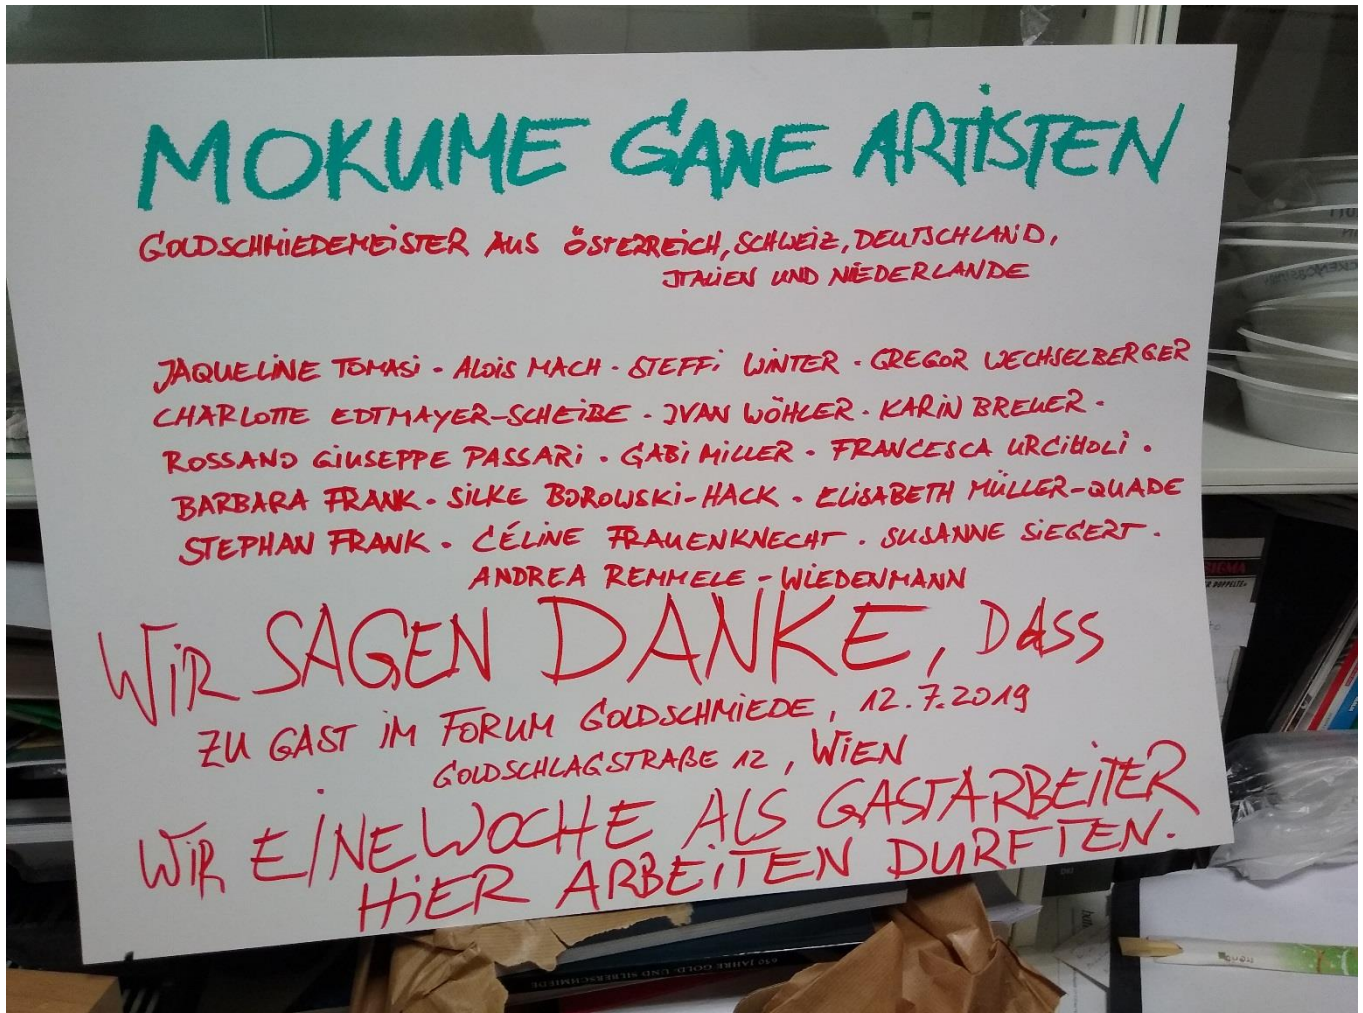 MOKUME GANE ARTISTEN
GOLDSCHMIEDEMEISTER AUS ÖSTERREICH, SCHWEIZ, DEUTSCHLAND,
ITALIEN UND NIEDERLANDE
JAQUELINE TOMASI · ALOIS MACH · STEFFI WINTER · GREGOR WECHSELBERGER
CHARLOTTE EDTMAYER-SCHEIBE · IVAN WÖHLER · KARIN BREUER ·
ROSSANO GIUSEPPE PASSARI · GABI MILLER · FRANCESCA URCIUOLI ·
BARBARA FRANK · SILKE BOROWSKI-HACK · ELISABETH MÜLLER-QUADE
STEPHAN FRANK · CÉLINE FRAUENKNECHT · SUSANNE SIEGERT ·
ANDREA REMMELE - WIEDENMANN
WIR SAGEN DANKE, DASS
ZU GAST IM FORUM GOLDSCHMIEDE, 12.7.2019
GOLDSCHLAGSTRAßE 12, WIEN
WIR EINE WOCHE ALS GASTARBEITER
HIER ARBEITEN DURFTEN.
650 JAHRE GOLD- UND SILBERSCHMIEDE
SIGMA